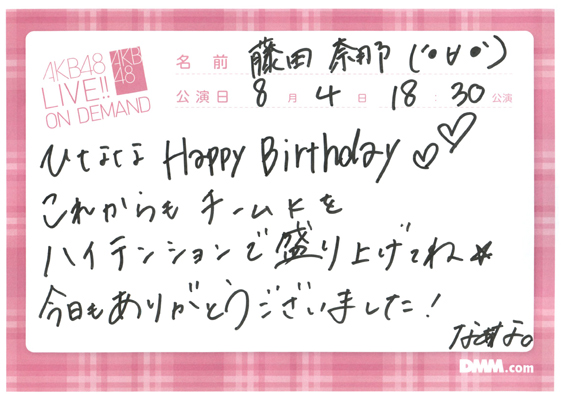 AKB48
LIVE!!
ON DEMAND
AKB
48
名前 藤田 奈那 (´•∀•`)
公演日 8月 4日 18:30 公演
ひななな Happy Birthday ♡♡
これからもチームKを
ハイテンションで盛り上げてね★
今日もありがとうございました!
なぁな。
DMM.com